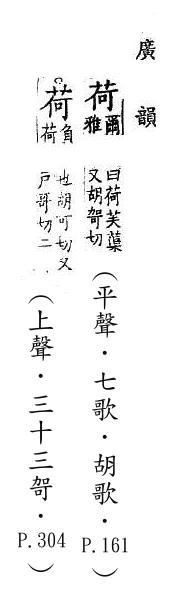 廣韻
荷爾雅曰荷芙蕖又胡哿切（平聲·七歌·胡歌·P.161）
荷負荷也胡可切又戶哥切二（上聲·三十三哿·P.304）